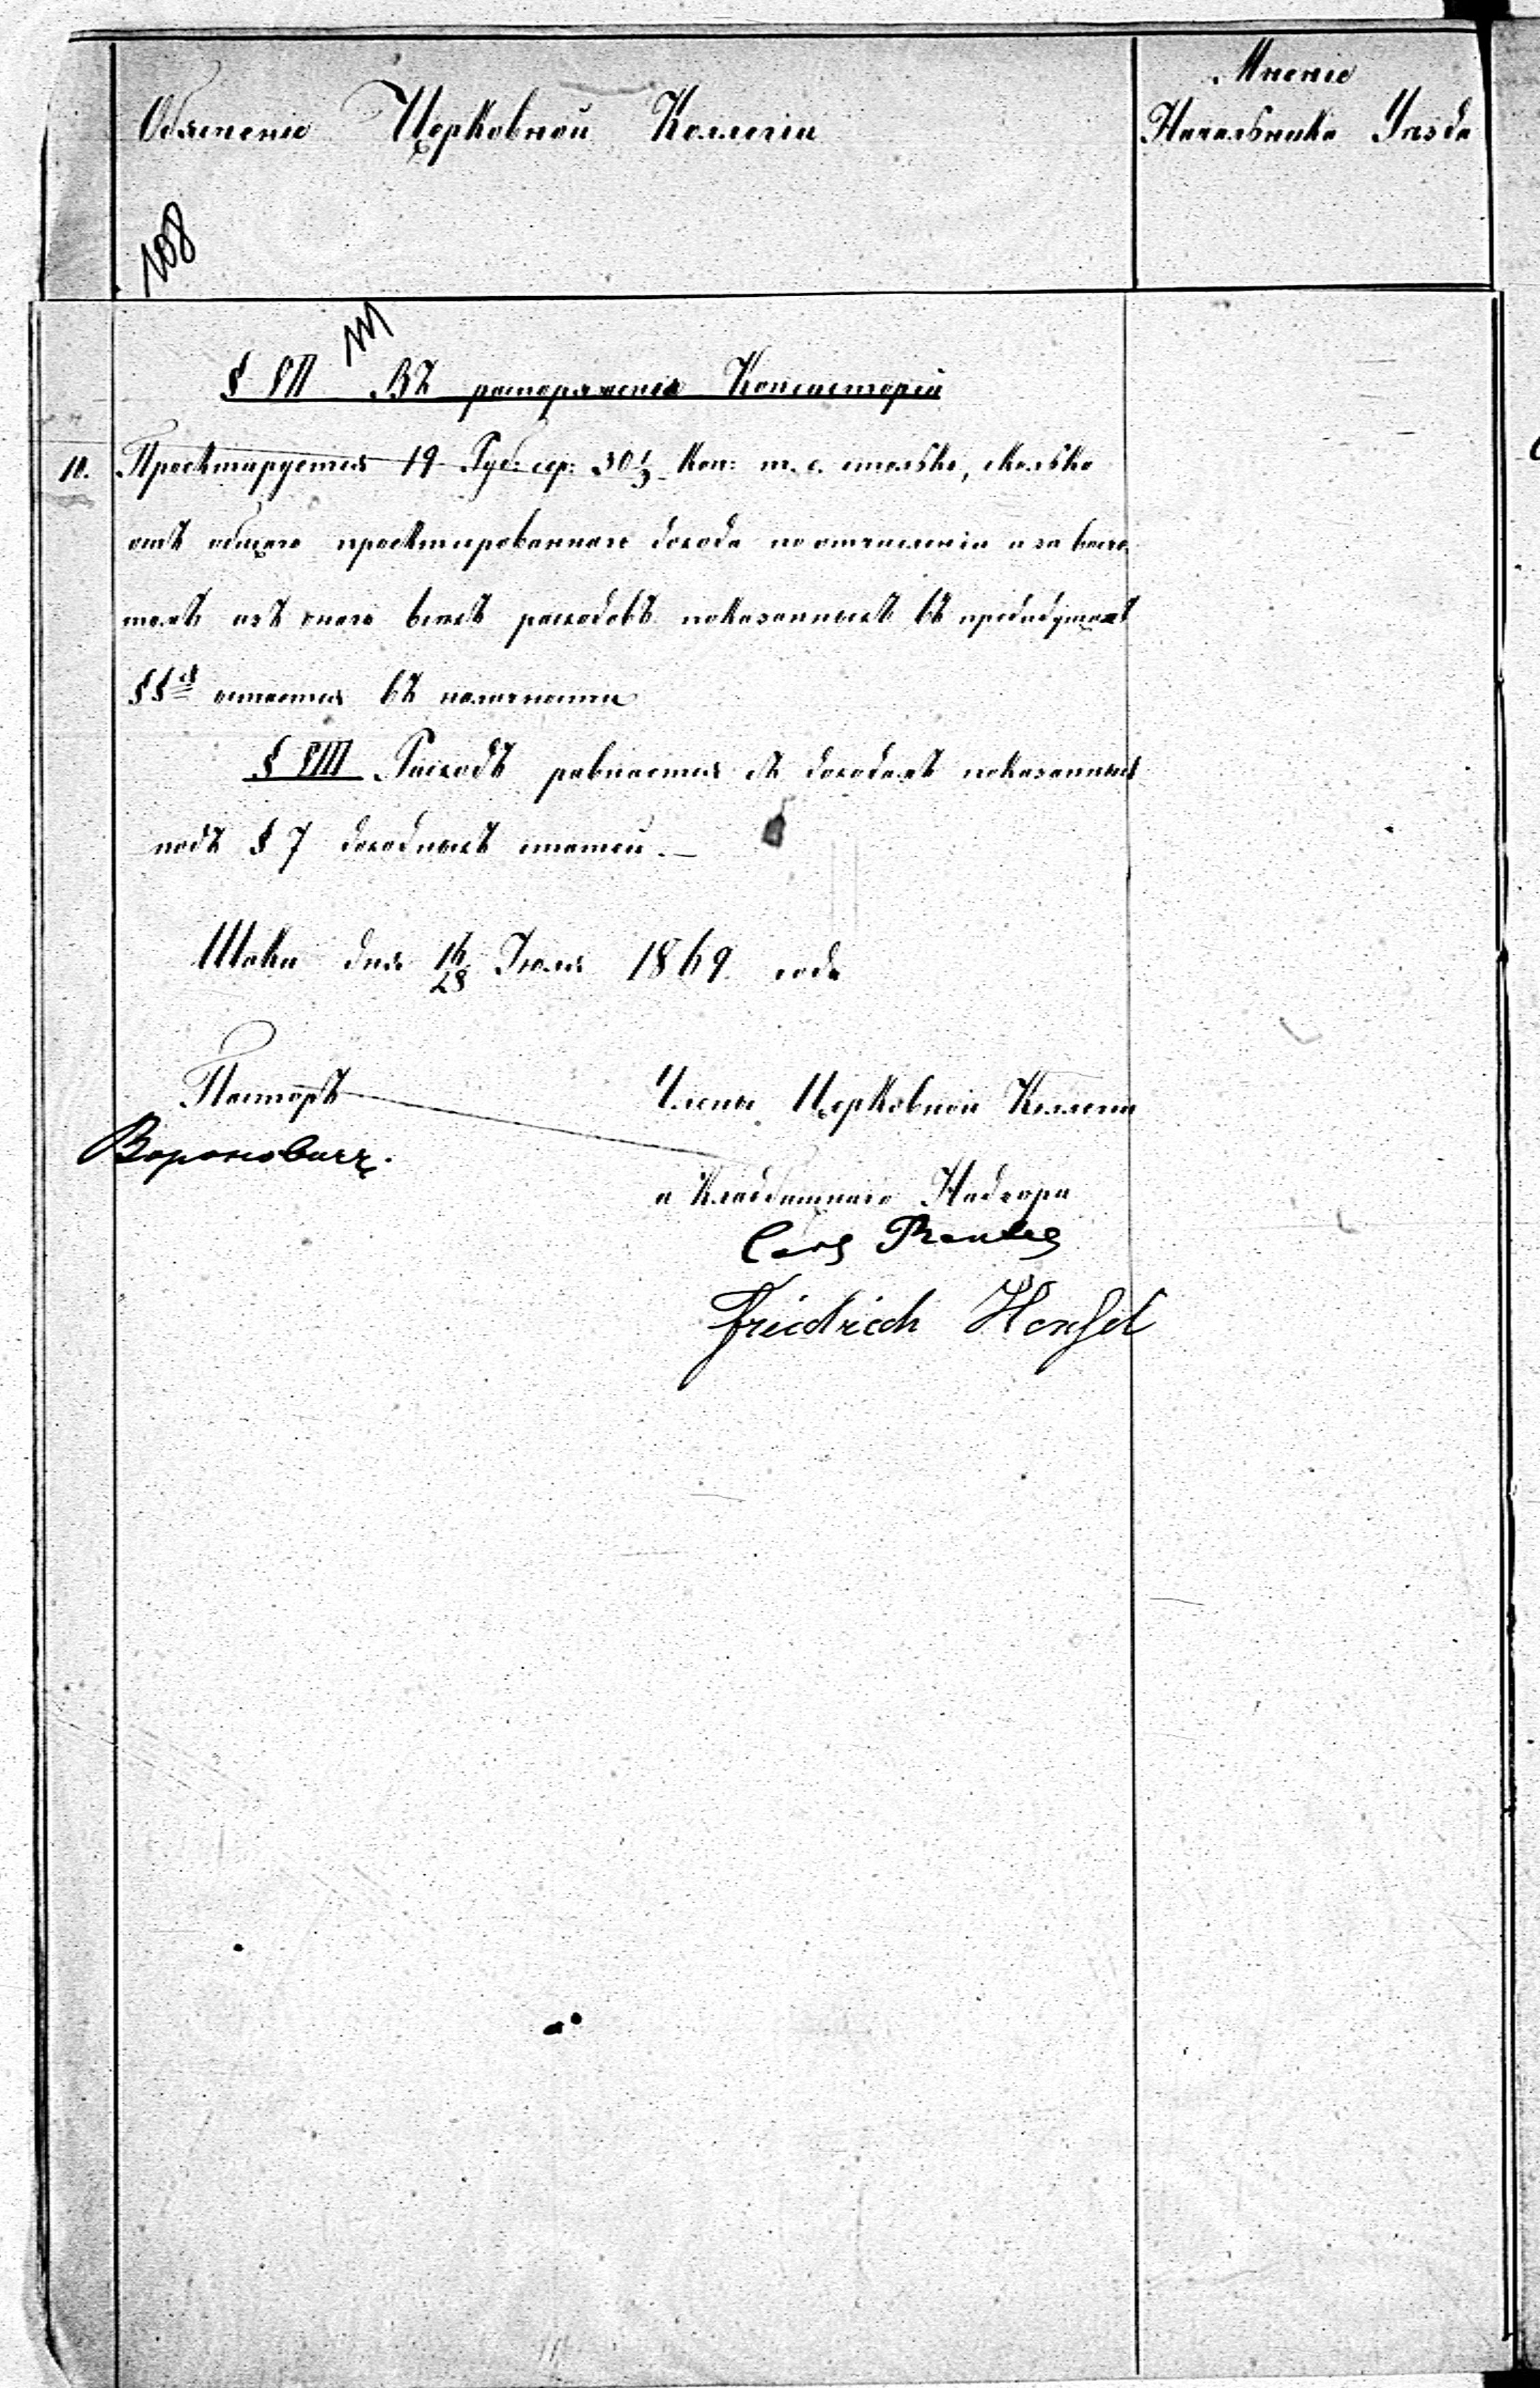 Мненіе
Обясненіе Церковной Коллегіи
Начальника Уезда
108
§ VII Въ распоряженіе Консисторіи
10. Проектируется 19 Руб: сер: 30⅓ Коп: т. е. столько, сколько
отъ общаго проектированнаго дохода по отчисленіи
изъ онаго всехъ расходовъ показанныхъ въ предидущихъ
§§ остается въ наличности
§ VIII Расходъ равняется съ доходамъ показаннымъ
подъ § 7 доходныхъ статей. —
Шаки дня 16/28 Іюля 1869 года
Пасторъ
Члены Церковной Коллегіи
Вороновичъ.
и Кладбищнаго Надзора
Carl
Friedrich Hensel